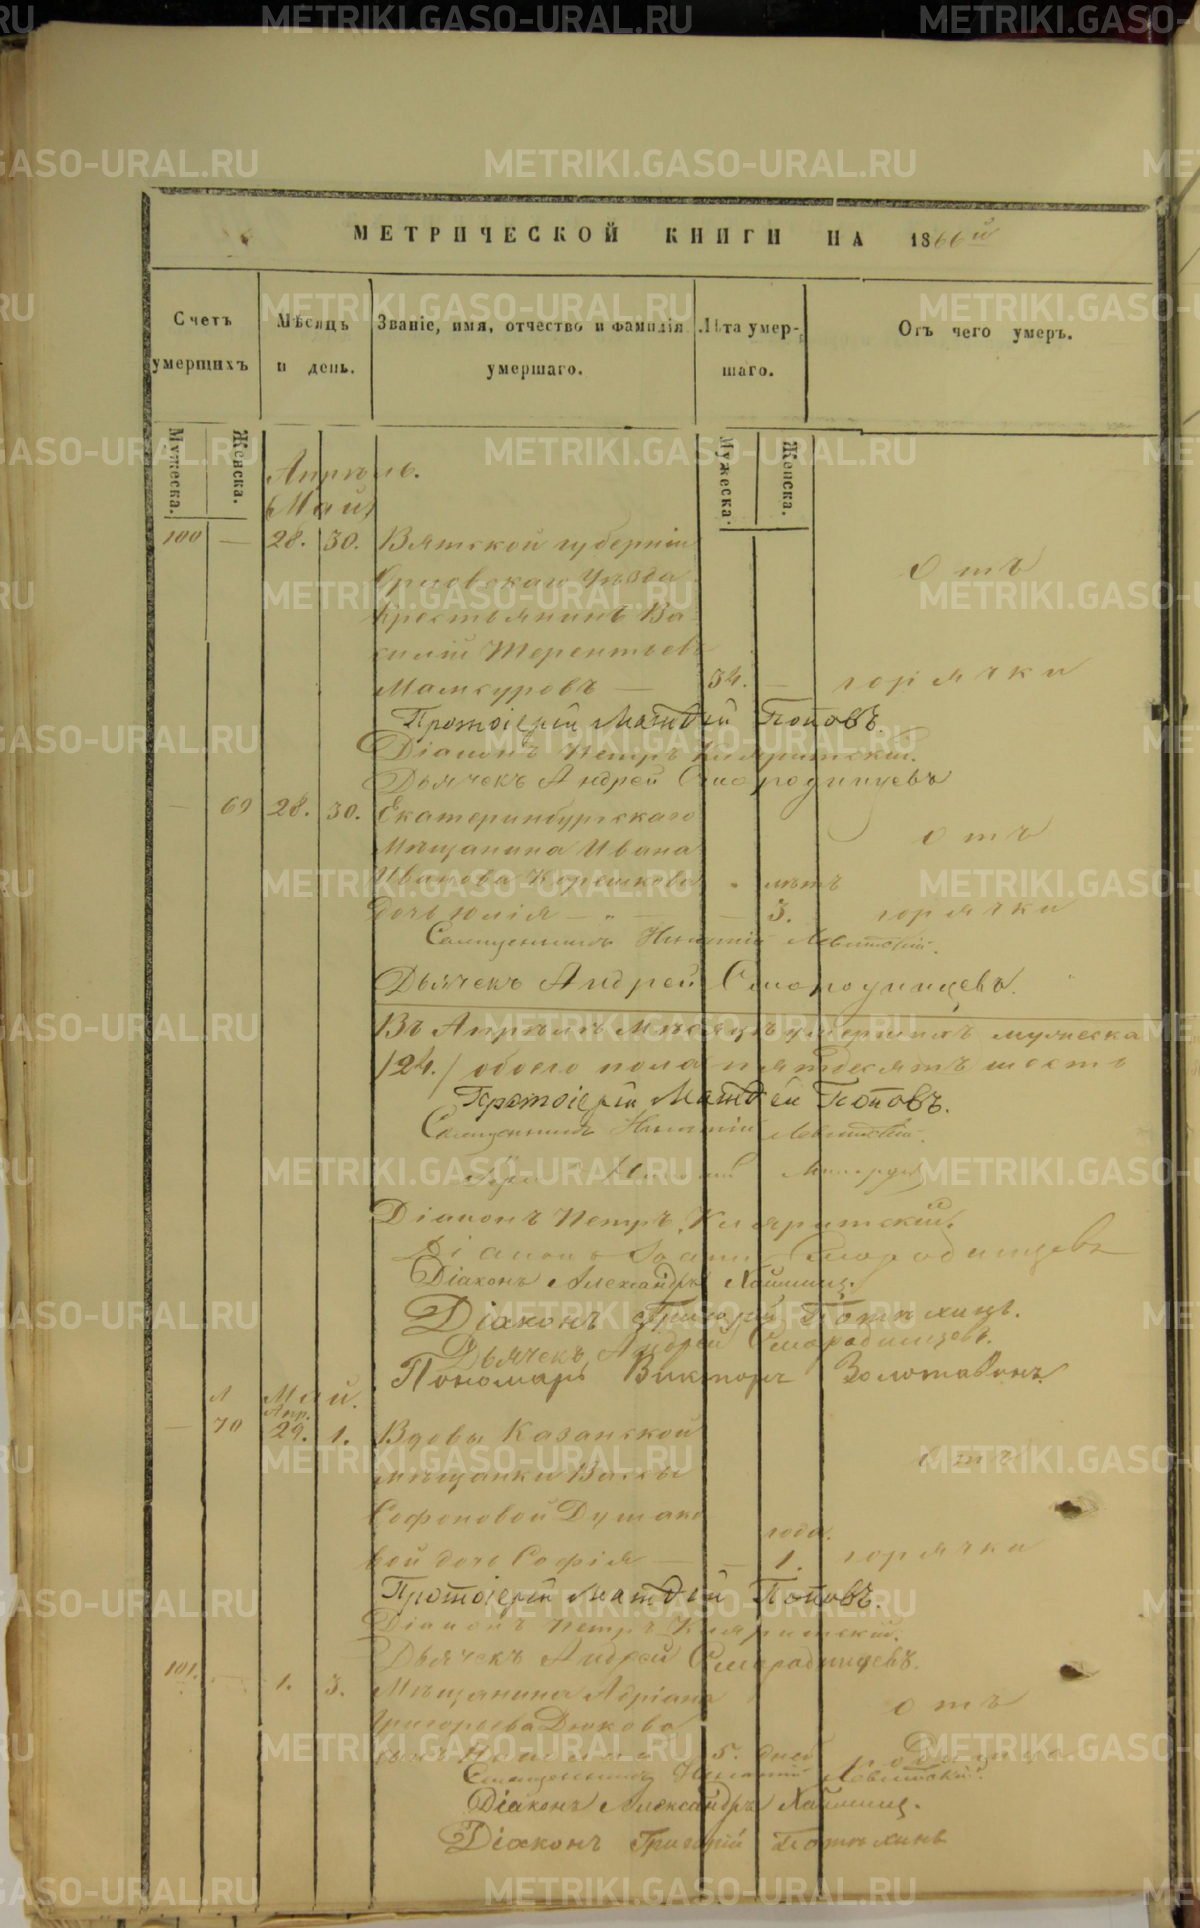 МЕТРИЧЕСКОЙ КНИГИ НА 1866й
Счетъ умершихъ
Мѣсяцъ и день.
Званіе, имя, отчество и фамилія умершаго.
Лѣта умершаго.
Отъ чего умеръ.
Мужеска.
Женска.
Мужеска.
Женска.
Апрѣль.
Май
100 — 28. 30. Вятской губерніи
Орловскаго Уѣзда отъ
крестьянинъ Ва-
силій Терентьевъ
— 54. — горячки
Протоіерей Матвѣй Поповъ.
Діаконъ Петръ
Дьячекъ Андрей Смородинцевъ
— 69 28. 30. Екатеринбургскаго
мѣщанина Ивана отъ
Иванова лѣтъ
дочь Юлія — „ — — 3. горячки
Священникъ Игнатій Левитскій.
Дьячекъ Андрей Смородинцевъ.
Въ Апрѣлѣ мѣсяцѣ умершихъ мужеска
/24./ обоего пола пятдесятъ шесть
Протоіерей Матвѣй Поповъ.
Священникъ Игнатій Левитскій.
Діаконъ Петръ
Діаконъ Іоаннъ Смородинцевъ
Діаконъ Александръ
Діаконъ Григорій Потѣхинъ.
Дьячекъ Андрей Смородинцевъ.
Пономарь Викторъ Золотавинъ.
Май.
Апр.
— 70 29. 1. Вдовы Казанской
мѣщанки отъ
Софоновой
года.
вой дочь Софія — — 1. горячки
Протоіерей Матвѣй Поповъ.
Діаконъ Петръ
Дьячекъ Андрей Смородинцевъ.
101. — 1. 3. Мѣщанина Адріана
Григорьева Дюкова отъ
сынъ 5. дней родимца
Священникъ Игнатій Левитскій.
Діаконъ Александръ
Діаконъ Григорій Потѣхинъ
METRIKI.GASO-URAL.RU